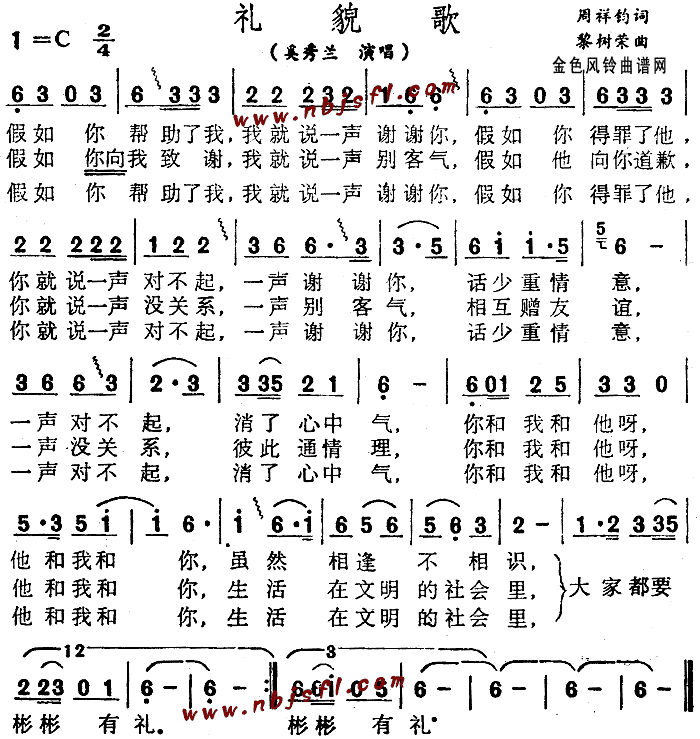 礼貌歌
1=C 2/4
(奚秀兰 演唱)
周祥钧词
黎树荣曲
金色风铃曲谱网
www.nbjsfl.com
6 3 0 3 | 6 3 3 3 | 2 2 2 3 2 | 1 6 6 | 6 3 0 3 | 6 3 3 3 |
假如 你 帮助了我,我就说一声 谢谢你,假如 你 得罪了他,
假如 你向我致 谢,我就说一声 别客气,假如 他 向你道歉,
假如 你 帮助了我,我就说一声 谢谢你,假如 你 得罪了他,
2 2 2 2 2 | 1 2 2 | 3 6 6·3 | 3·5 | 6 i i·5 | 6 - |
你就说一声 对不起,一声谢谢你,话少重情 意,
你就说一声没关系,一声别客气,相互赠友 谊,
你就说一声对不起,一声谢谢你,话少重情 意,
3 6 6 3 | 2·3 | 3 3 5 2 1 | 6 - | 6 0 1 2 5 | 3 3 0 |
一声对不起,消了心中气,你和我和他呀,
一声没关系,彼此通情理,你和我和他呀,
一声对不起,消了心中气,你和我和他呀,
5·3 5 i | i 6· | i 6·i | 6 5 6 | 5 6 5 3 | 2 - | 1·2 3 3 5 |
他和我和 你,虽然 相逢 不 相识,
他和我和 你,生活 在文明的社会里,大家都要
他和我和 你,生活 在文明的社会里,
12
3
2 2 3 0 1 | 6 - | 6 - :‖ 6 0 i 0 5 | 6 - | 6 - ‖
彬彬 有礼. 彬彬 有礼.
www.nbjsfl.com